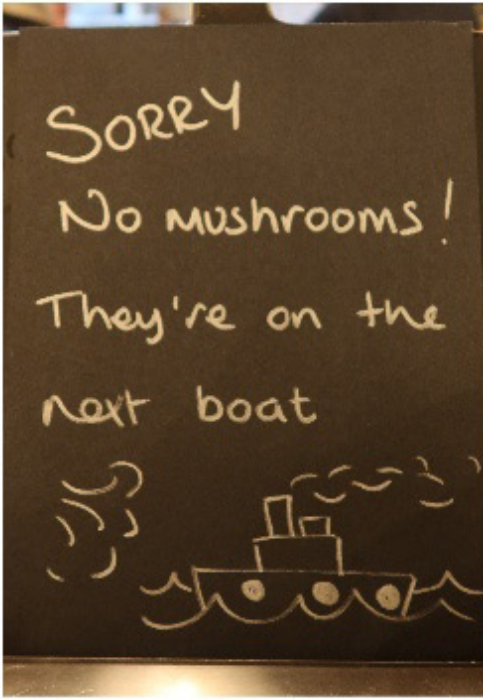 SORRY
No Mushrooms!
They're on the
next boat